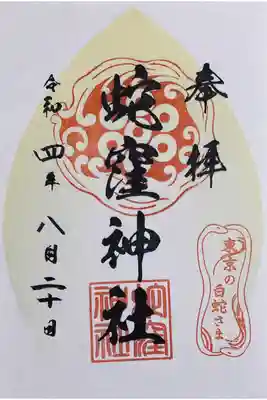 奉拝
蛇窪神社
令和四年八月二十日
東京の
白蛇さま
蛇窪
神社